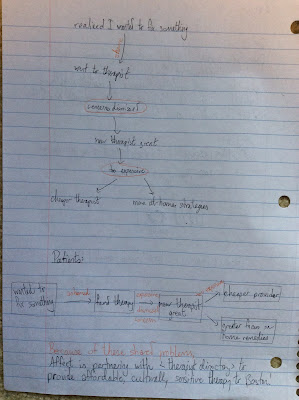 realized I wanted to fix something
went to therapist
concerns dismissed
new therapist great
too expensive
cheaper therapist
more at-home strategies
Patients:
wanted to
fix something
find therapy
new therapist
great
cheaper provider
greater focus on
home remedies
Because of these shared problems,
Affect is partnering with <therapist directory> to
provide affordable, culturally sensitive therapy to Boston.